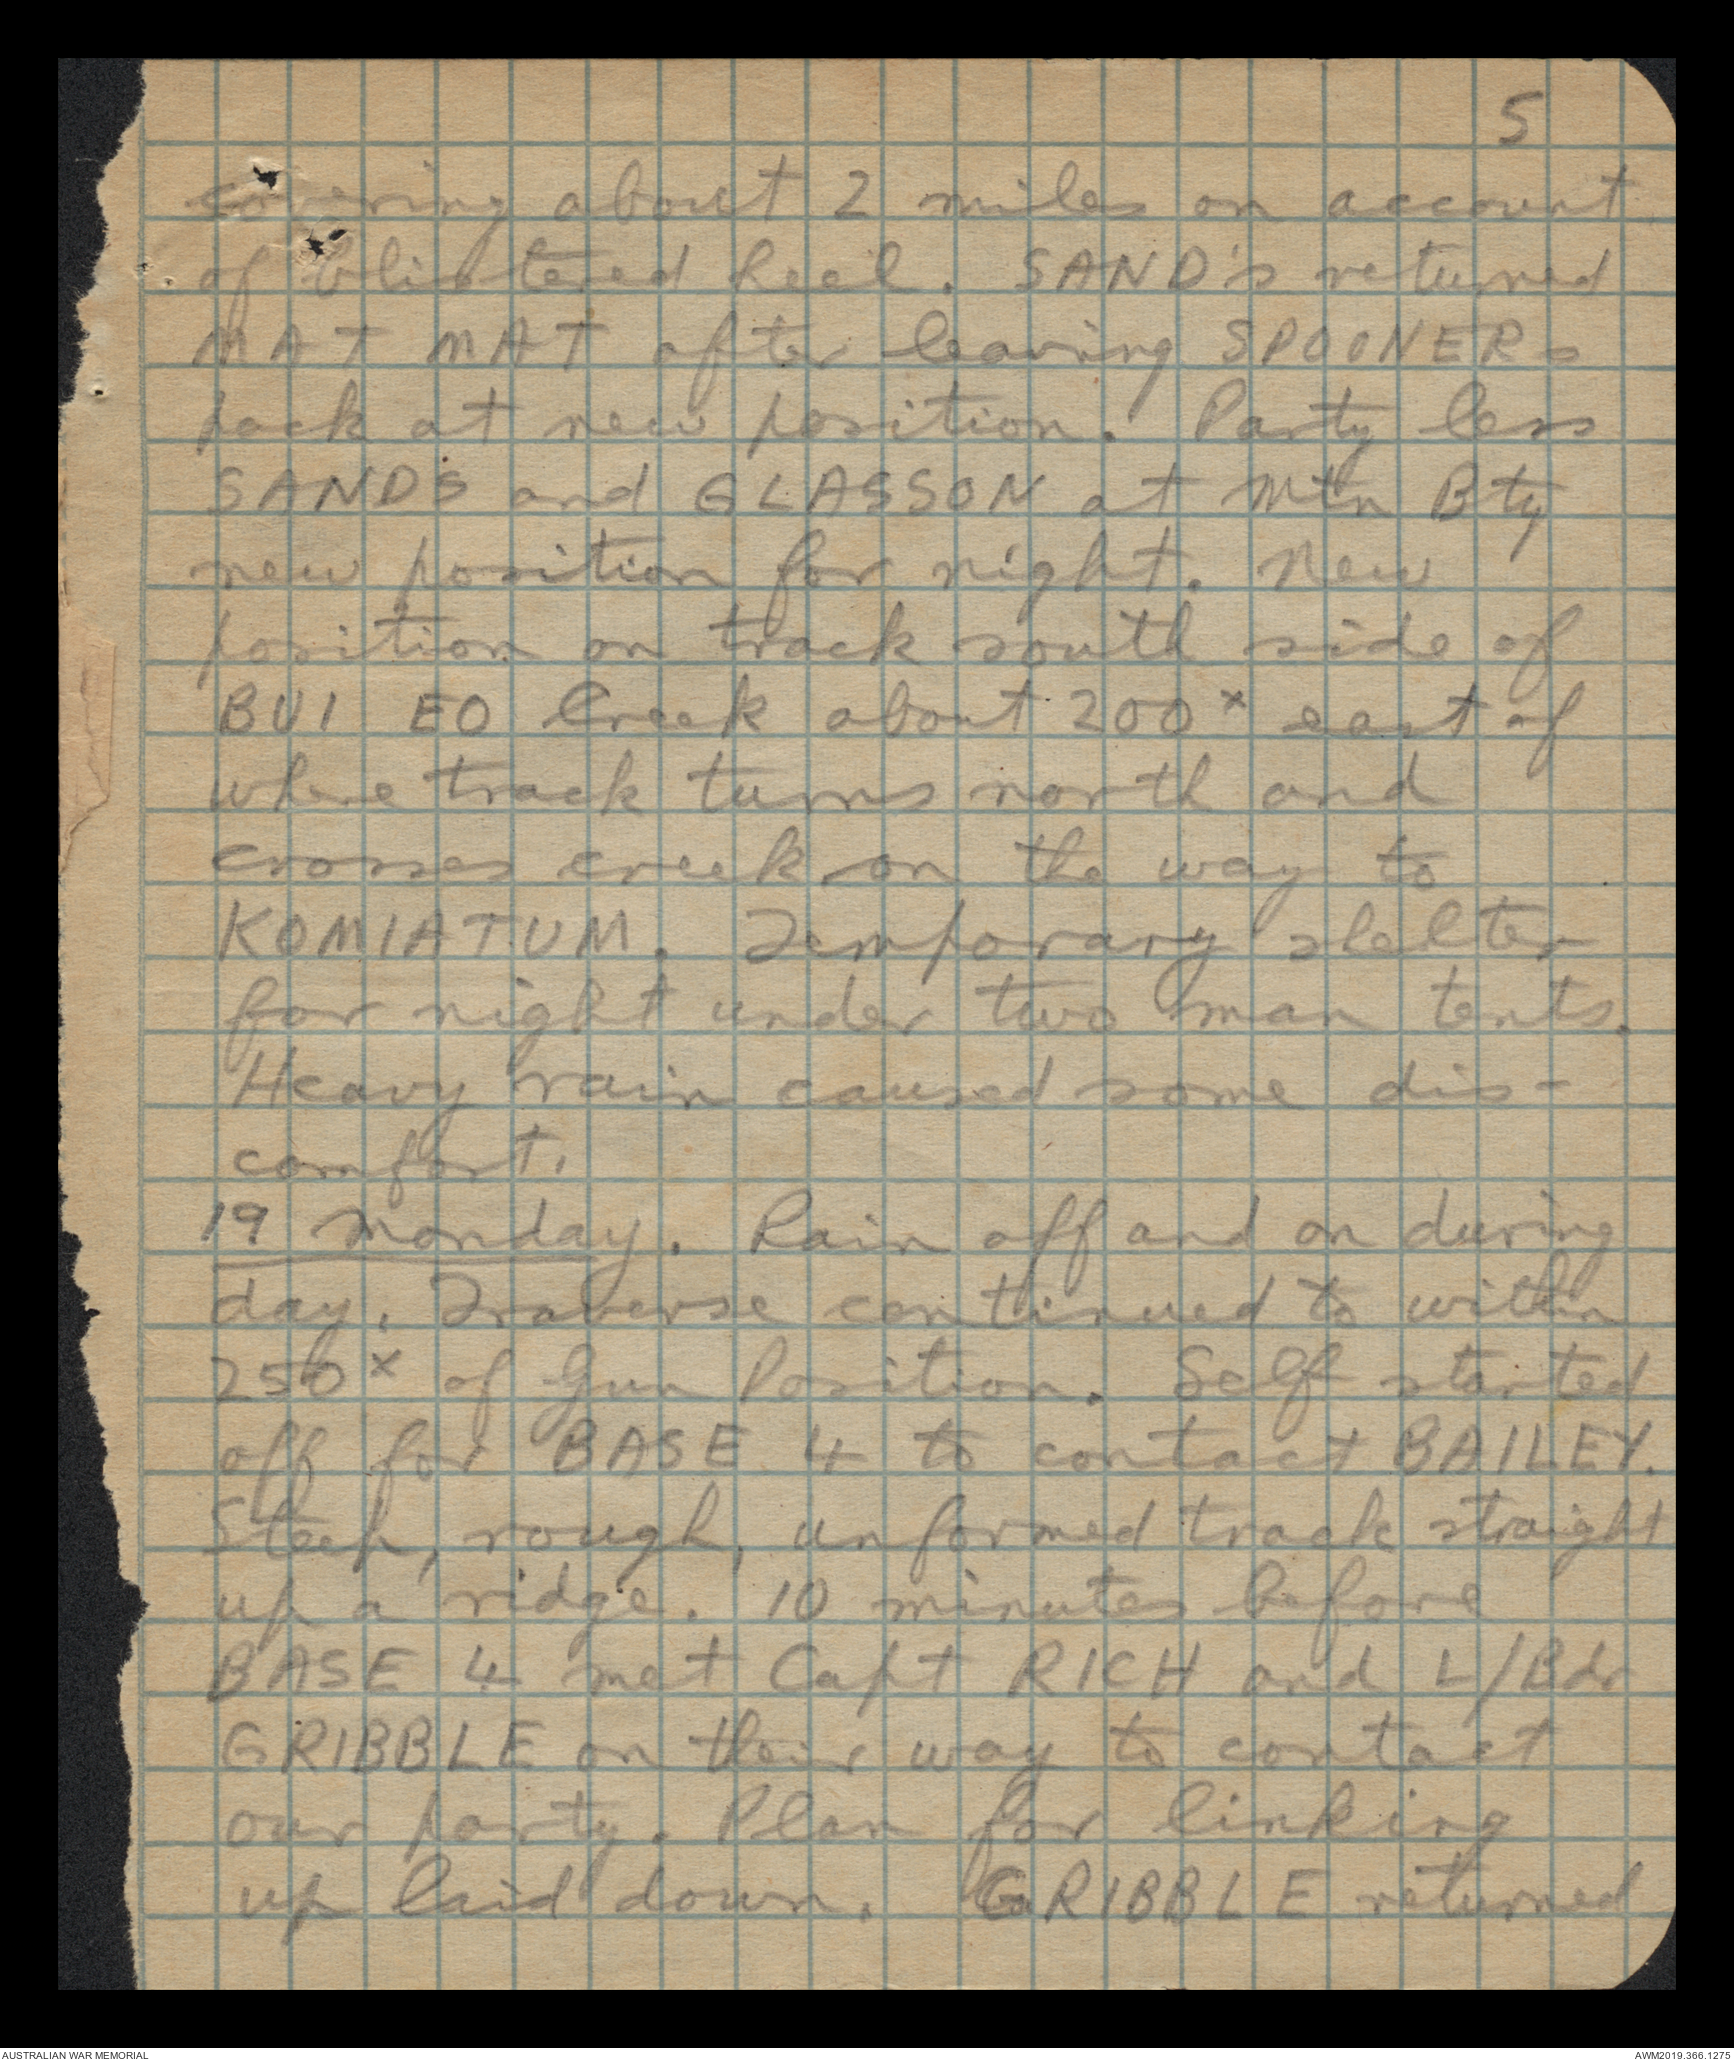 5
covering about 2 miles on account
of blistered heel. SAND's returned
MAT MAT after leaving SPOONERs
pack at new position. Party less
SANDS and GLASSON at Mtn Bty
new position for night. New
position on track south side of
BUI EO Creek about 200ˣ east of
where track turns north and
crosses creek on the way to
KOMIATUM. Temporary shelter
for night under two man tents.
Heavy rain caused some dis-
comfort.
19 Monday. Rain off and on during
day. Traverse continued to within
250ˣ of Gun Position. Self started
off for BASE 4 to contact BAILEY.
Steep, rough, unformed track straight
up a ridge. 10 minutes before
BASE 4 met Capt RICH and L/Bdr
GRIBBLE on their way to contact
our party. Plan for linking
up laid down. GRIBBLE returned
AUSTRALIAN WAR MEMORIAL
AWM2019.366.1275